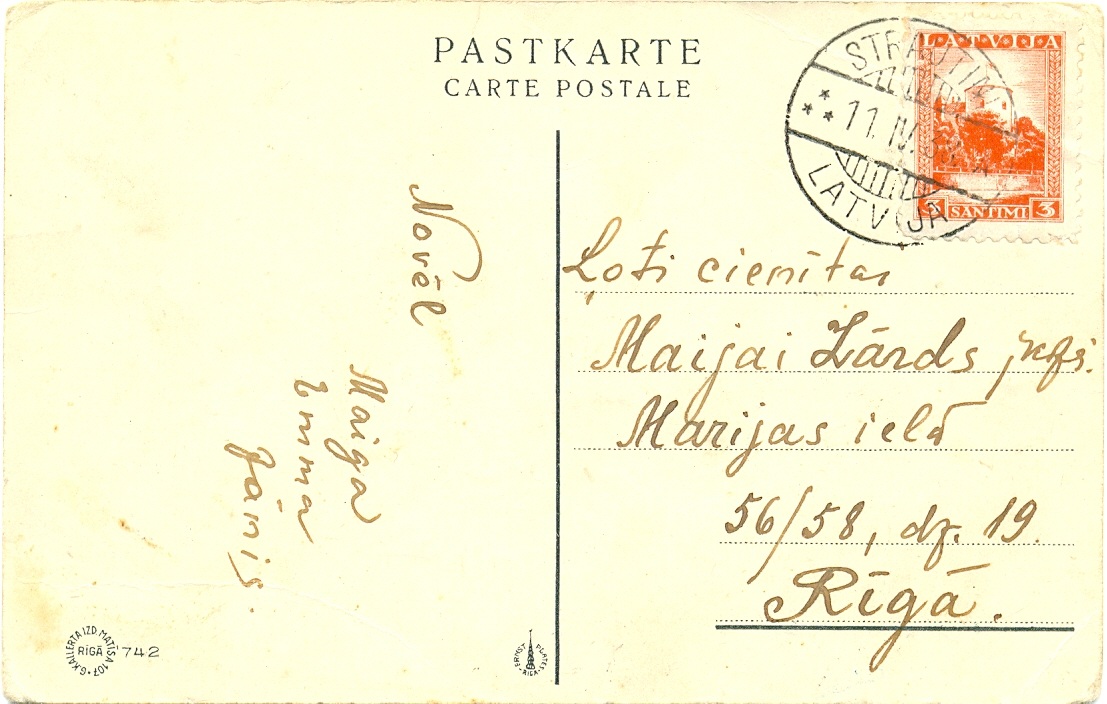 PASTKARTE
CARTE POSTALE
LATVIJA
3 SANTIMI 3
11. IV. 
LATVIJA
Novēl
Maiga
Emma
Jānis.
Ļoti cienītai
Maijai Zārds
Marijas ielā
56/58, dz. 19.
Rīgā.
G. KALLERTA IZD. MATISA 107
RĪGĀ
742
ERNST PLATES
RIGA